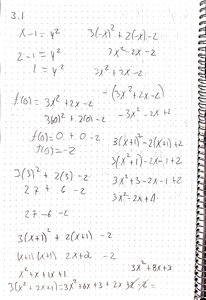 3.1
x-1=y²
2-1=y²
1=y²
3(-x)²+2(-x)-2
3x²-2x-2
3x²+2x-2
f(0)=3x²+2x-2
3(0)²+2(0)-2
f(0)=0+0-2
f(0)=-2
-(3x²+2x-2)
-3x²-2x+2
3(3)²+2(3)-2
27+6-2
27-6-2
3(x+1)²-2(x+1)+2
3(x²+1)-2x-1+2
3x²+3-2x-1+2
3x²-2x+4
3(x+1)²+2(x+1)-2
(x+1)(x+1) 2x+2 -2
x²+x+1x+1
3x²+8x+3
3(x²+2x+1)=3x²+6x+3+2x